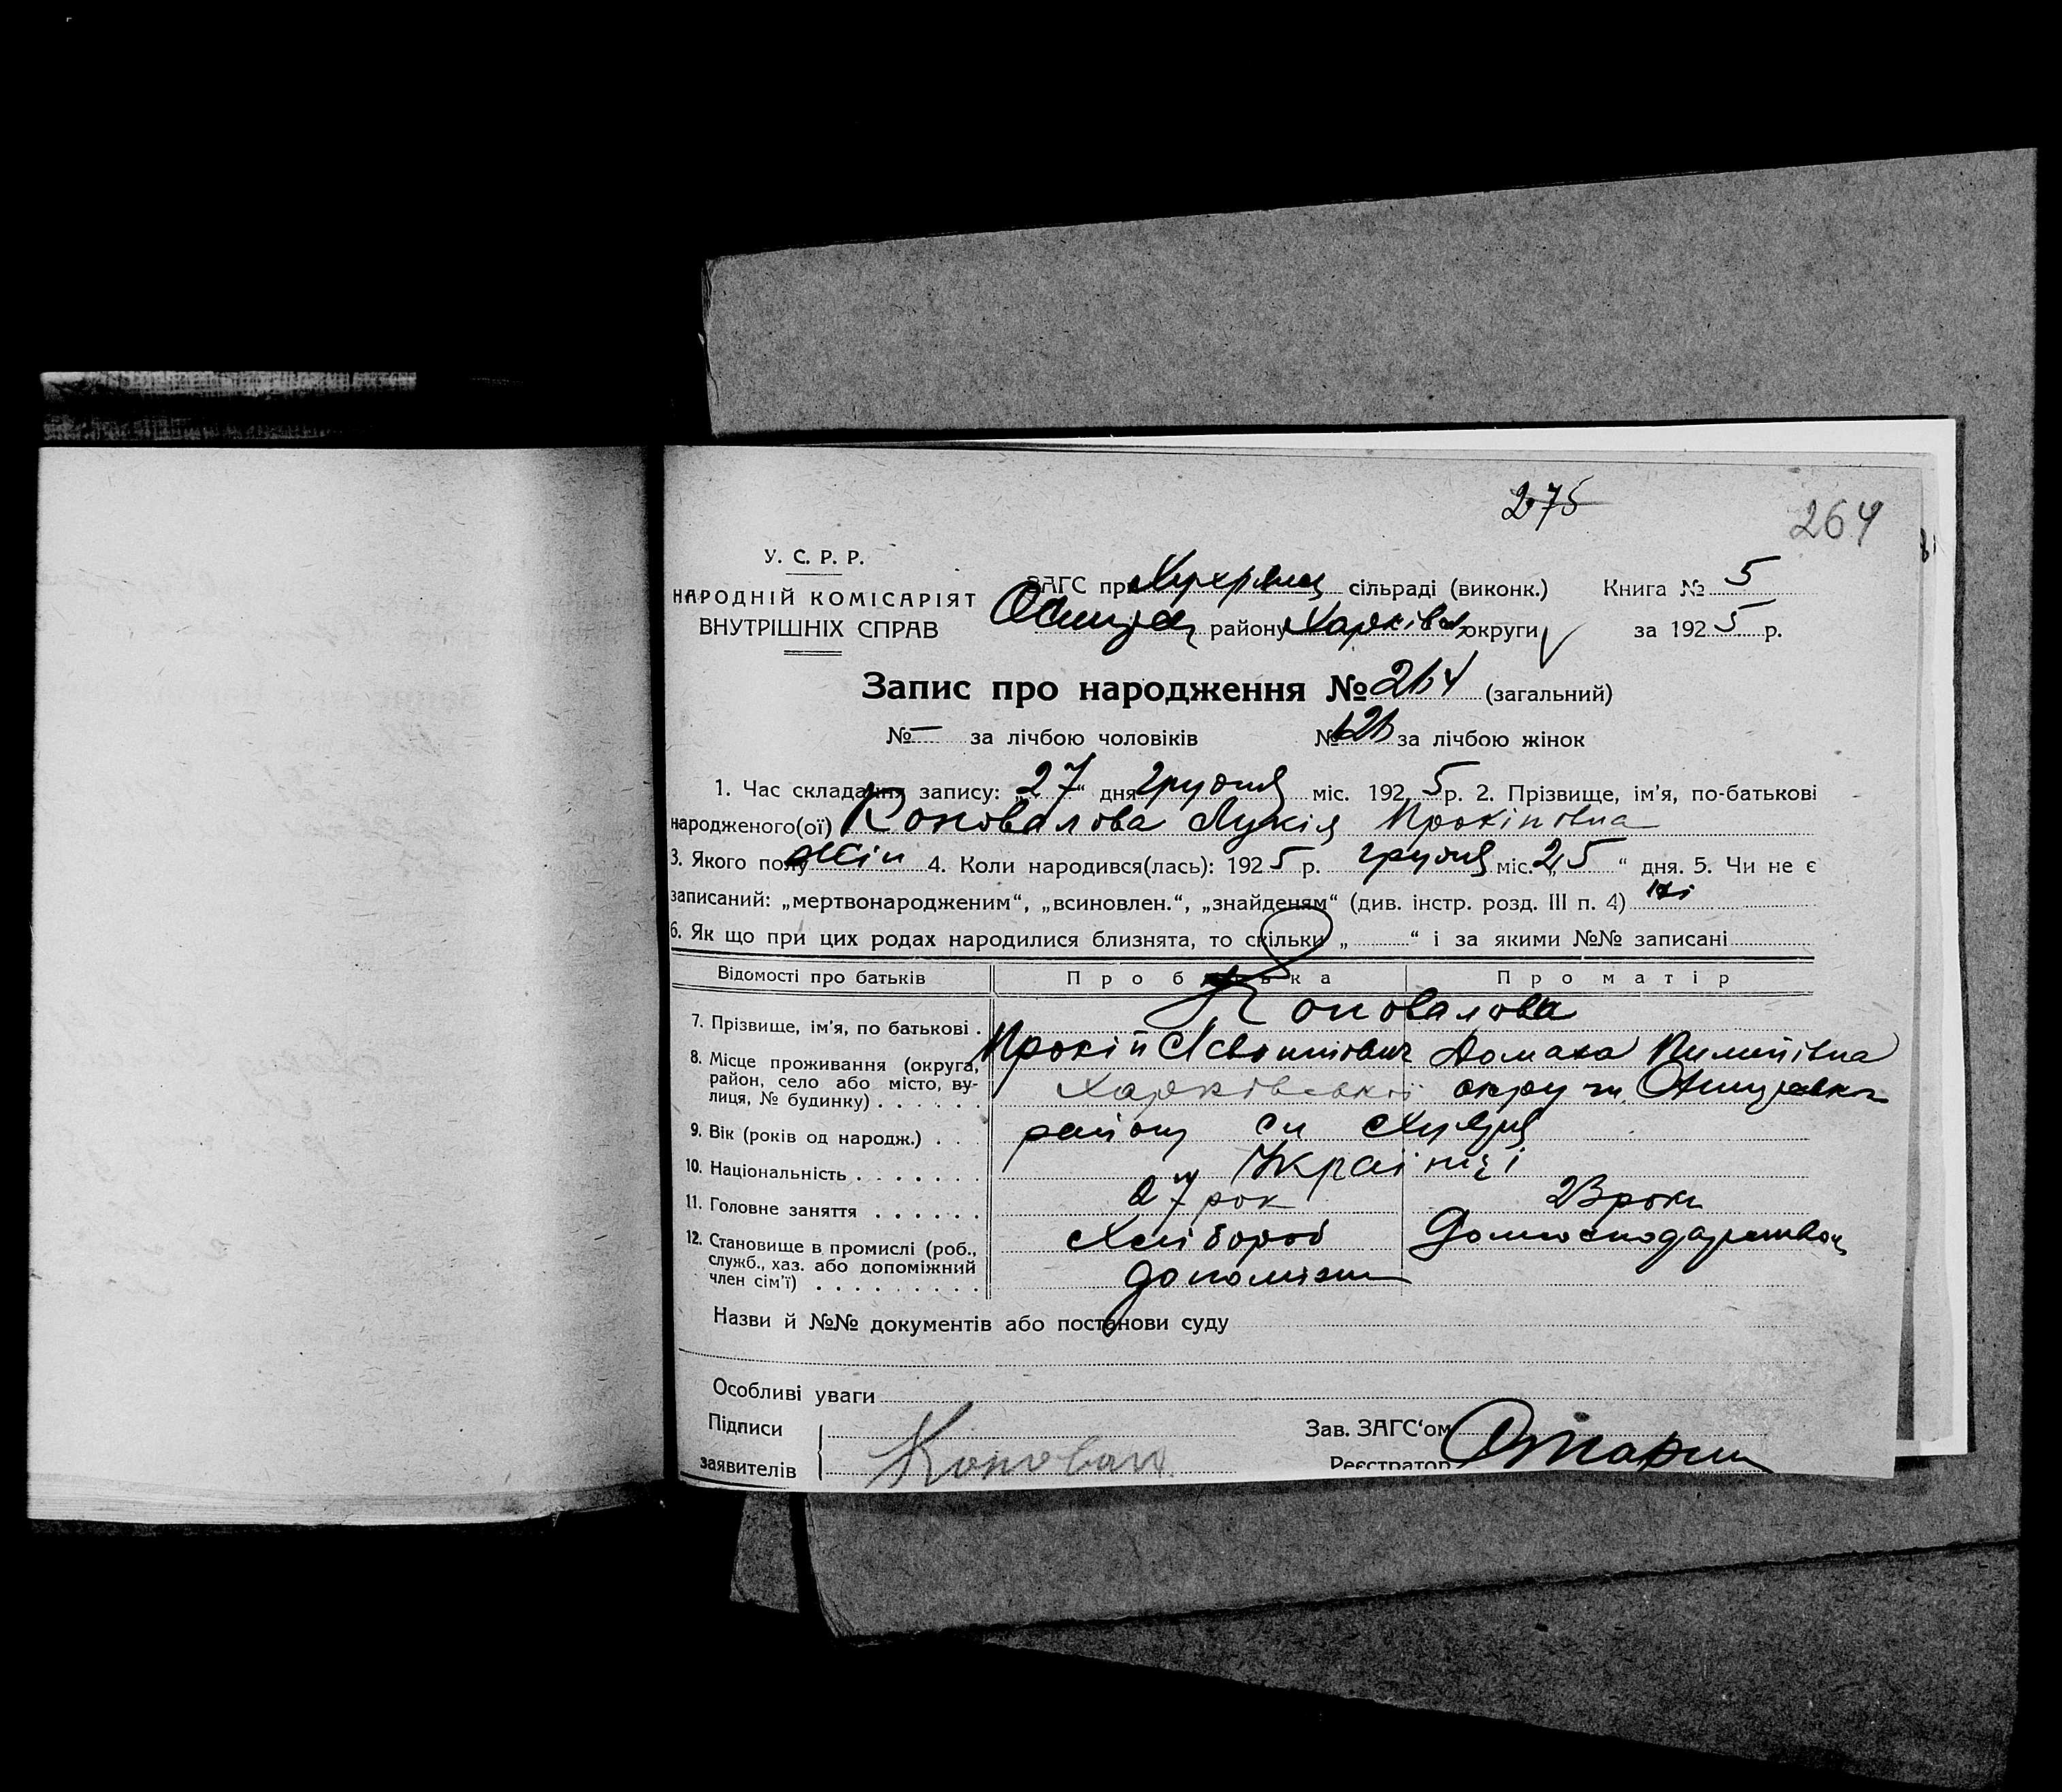 275
264
У. С. Р. Р.
НАРОДНІЙ КОМІСАРІЯТ
ВНУТРІШНІХ СПРАВ
ЗАГС при сільраді (виконк.) Книга № 5
району Харків округи за 1925 р.
Запис про народження № 264 (загальний)
№ — за лічбою чоловіків № 126 за лічбою жінок
1. Час складання запису: „27“ дня грудня міс. 1925 р. 2. Прізвище, ім'я, по-батькові
народженого(ої) Коновалова Лукія Прокіпівна
3. Якого полу жін 4. Коли народився(лась): 1925 р. грудня міс. „25“ дня. 5. Чи не є
записаний: „мертвонародженим“, „всиновлен.“, „знайденям“ (див. інстр. розд. III п. 4) ні
6. Як що при цих родах народилися близнята, то скільки „ “ і за якими №№ записані
Відомості про батьків Про батька Про матір
7. Прізвище, ім'я, по батькові . Коновалова
Прокіп Домаха Пилипівна
8. Місце проживання (округа, район, село або місто, вулиця, № будинку) . . . . . . Харківської округи
9. Вік (років од народж.) . . . району
10. Національність . . . . . . . Українці
11. Головне заняття . . . . . . 27 рок 23 роки
12. Становище в промислі (роб., служб., хаз. або допоміжний член сім'ї) . . . . . . . . . Хлібороб
Назви й №№ документів або постанови суду
Особливі уваги
Підписи
заявителів Коновал
Зав. ЗАГС'ом
Реєстратор